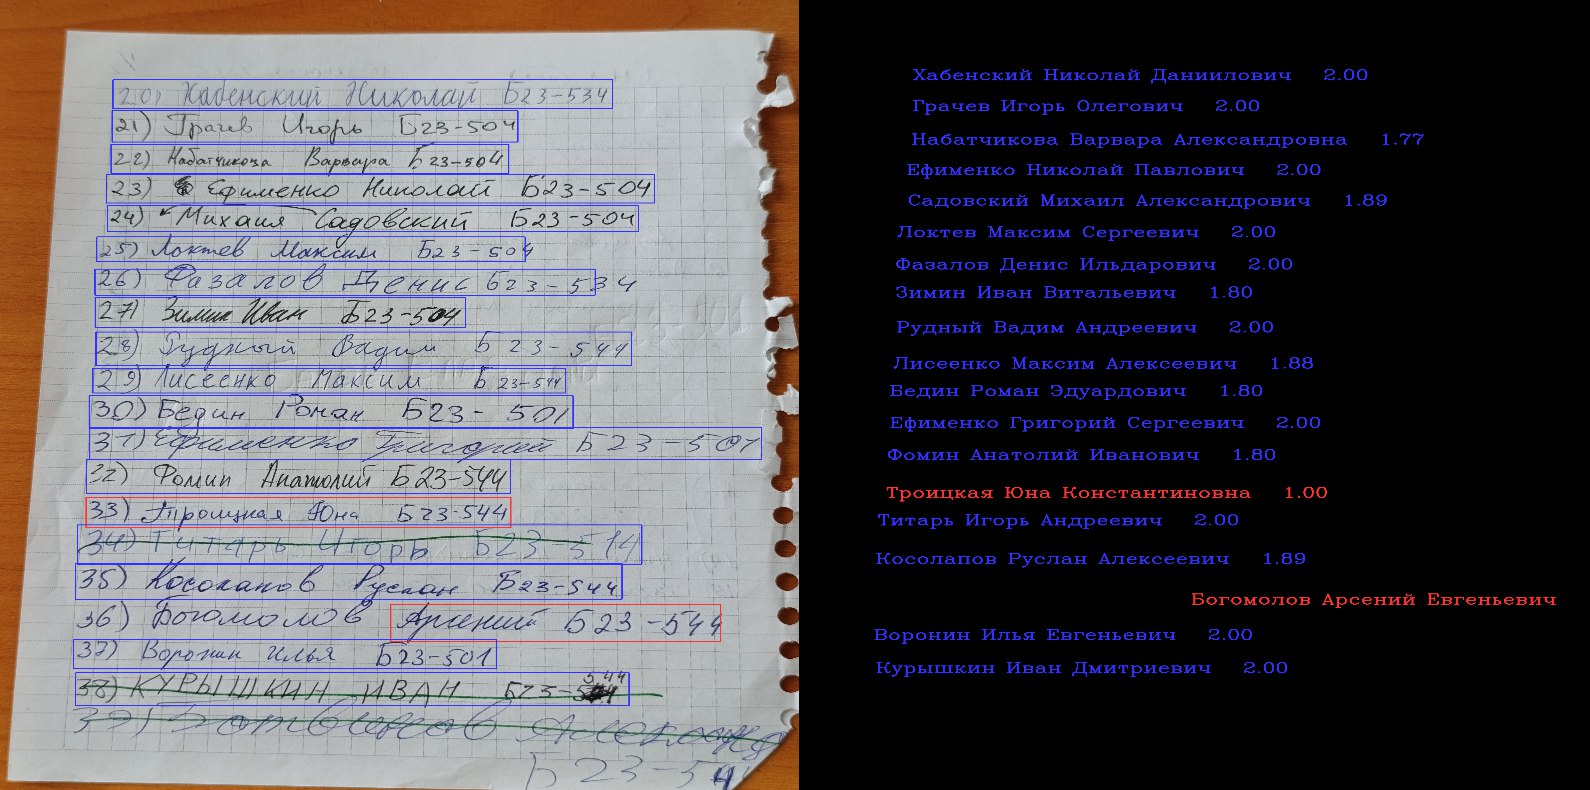 20) Хабенский Николай Б23-534
21) Грачев Игорь Б23-504
22) Набатчикова Варвара Б23-504
23) Ефименко Николай Б23-504
24) Михаил Садовский Б23-504
25) Локтев Максим Б23-504
26) Фазалов Денис Б23-534
27) Зимин Иван Б23-504
28) Рудный Вадим Б23-544
29) Лисеенко Максим Б23-544
30) Бедин Роман Б23-501
31) Ефименко Григорий Б23-501
32) Фомин Анатолий Б23-544
33) Троицкая Юна Б23-544
34) Титарь Игорь Б23-514
35) Косолапов Руслан Б23-544
36) Богомолов Арсений Б23-544
37) Воронин Илья Б23-501
38) КУРЫШКИН ИВАН Б23-544
39)
Б23-544
Хабенский Николай Даниилович 2.00
Грачев Игорь Олегович 2.00
Набатчикова Варвара Александровна 1.77
Ефименко Николай Павлович 2.00
Садовский Михаил Александрович 1.89
Локтев Максим Сергеевич 2.00
Фазалов Денис Ильдарович 2.00
Зимин Иван Витальевич 1.80
Рудный Вадим Андреевич 2.00
Лисеенко Максим Алексеевич 1.88
Бедин Роман Эдуардович 1.80
Ефименко Григорий Сергеевич 2.00
Фомин Анатолий Иванович 1.80
Троицкая Юна Константиновна 1.00
Титарь Игорь Андреевич 2.00
Косолапов Руслан Алексеевич 1.89
Богомолов Арсений Евгеньевич
Воронин Илья Евгеньевич 2.00
Курышкин Иван Дмитриевич 2.00